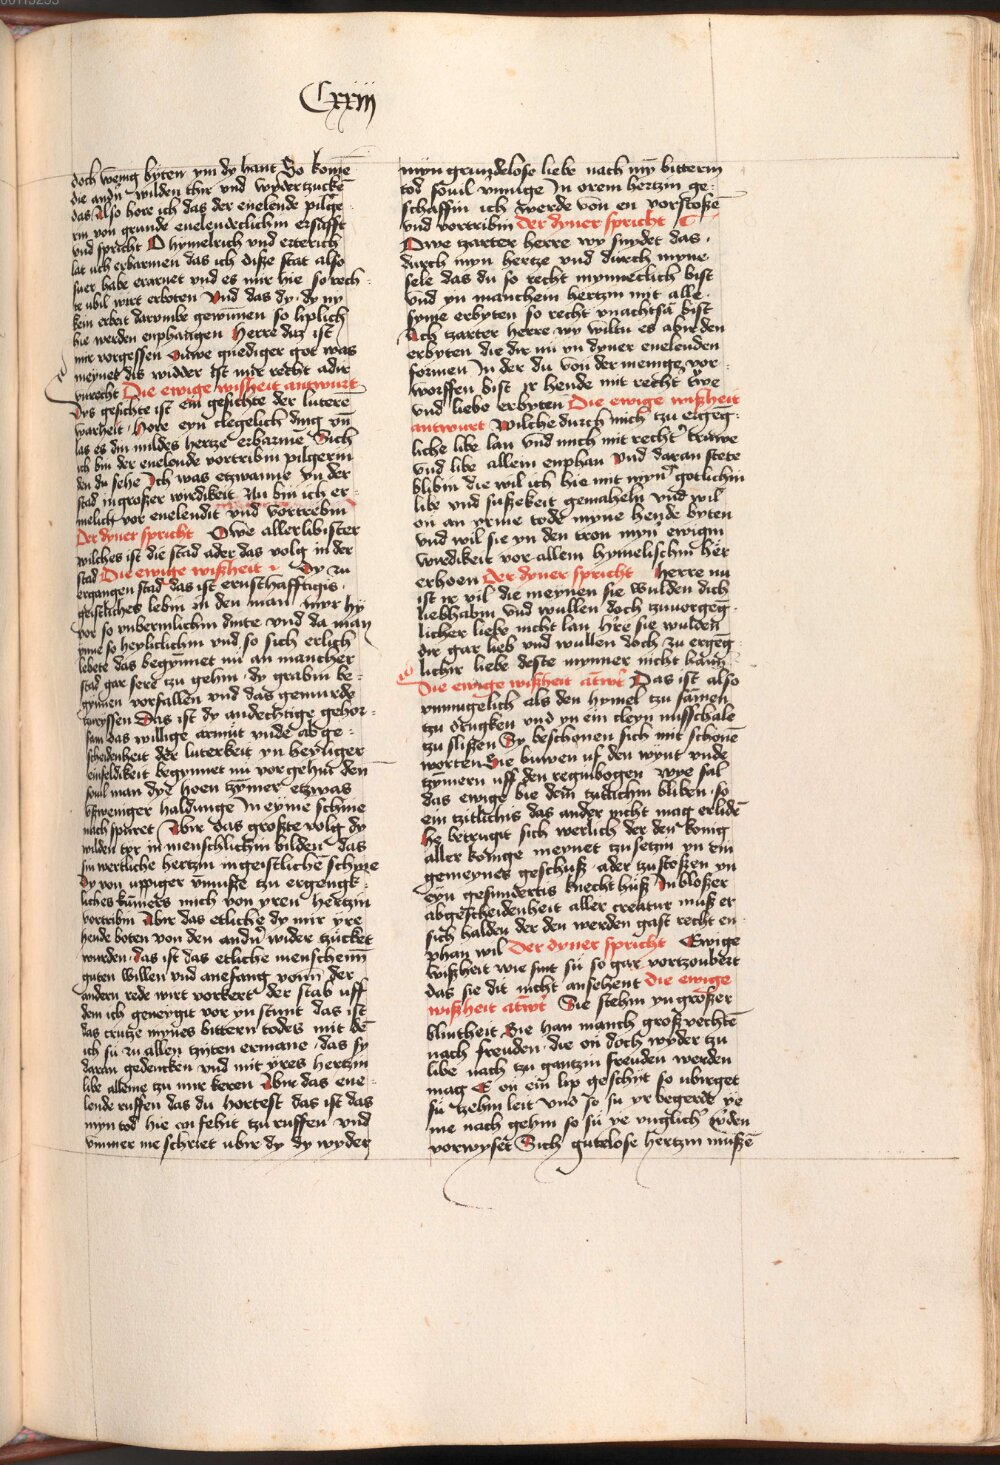 00113253
Cxxiij
doch wenig byten ym dy hant So kome̅
die and'n wilden thir vnd wydertzucke̅
das Also hore ich das der enelende pilge
rin von grunde enelenderlichim ersufft
vnd spricht O hymelrich vnd ertterich
lat uch erbarmen das ich disze stat also
suer habe erarnet vnd es mir hie so rech
te ubil wirt erboten Vnd das dy dy ny
kein erbeit darumbe gewinnen so liplich
hie werden enphangen Herre daz ist
mir vorgessen Ouwe gnediger got was
meynet dis widder ist mir recht adir
vnrecht Die ewige wiszheit antwurt
Dys gesichte ist ein gesichte der lutere̅
warheit Hore eyn clegelich ding vn̅
las es din mildes hertze erbarme̅ Sich
ich bin der enelende vortribin pilgerin
den du sehe Ich was etzwanne yn der
stad in groszer wirdikeit Nu bin ich er
melich vor enelendit vnd vortrebin
Der dyner spricht Owe allerlibister
wilches ist die stad ader das volg in der
stad Die ewige wiszheit Dy zu
ergangen stad das ist ernsthafftigis
geistliches lebin in den man myr hy
vor so ynbermlichim dinte vnd da man
ynne so heylichlichin vnd so sich erlich
liebete das begynnet nu an mancher
stad gar sere tzu gehin dy grabin be
gynnen vorfallen vnd das gemurde
tzuryssen Das ist dy andechtige gehor
sam das willige armut vnde abge
scheidenheit der luterkeit yn heyliger
einfeldikeit begynnet nu vorgehin den
souil man dye hoen tzymer etzwas
uszweniger haldunge In eyme schine
nach spuret Abir das groszte volg dy
wilden tyr in menschlichin bilden das
sin wertliche hertzin in geistliche̅ schyne
Dy von uppiger vnmusze tzu ergengk
liches kumers mich von yren hertzin
vortribin Abir das etliche dy mir yre
hende boten von den and'n widere tzucket
wurden das ist das etliche menschein̅
guten willen vnd anefang vonn der
andern rede wirt vorkert der stab uff
dem ich geneygit vor yn stunt das ist
das crutze mynes bittern todes mit de̅
ich su zu allen tzyten ermane das sy
daran gedencken vnd mit yres hertzin
libe alleine zu mir keren Abir das ene
lende ruffen das du hortest das ist das
myn tod hie an fehit tzu ruffen vnd
vmmer me schriet ubir dy dy wyder
myn grundelose liebe nach my̅ bittern
tod souil vnnige In orem hertzin ge
schaffin ich werde von en vorstosze̅
vnd vortribin Der dyner spricht
Owe tzarter herre wy snydet das
durch myn hertze vnd durch myne
sele das du so recht mynneclich bist
vnd yn manchem hertzin mit alle
syme erbyten so recht vnachtsa̅ bist
Ach tzarter herre wy wiltu es abir den
erbyten die dir nu yn dyner enelenden
formen In der du von der menige vor
worffen bist ir hende mit recht̅ t̅we
vnd liebe erbyten Die ewige wiszheit
antwurt Wilche durch mich tzu ergeg̅
liche libe lan vnd mich mit recht' truwe
vnd libe allein enphan Vnd daran stete
blibin die wil ich hie mit myn' gotlichin
libe vnd suszekeit gemaheln vnd wil
on an yrme tode myne hende byten
vnd wil sie yn den tron myn ewigin
wirdikeit vor allem hymelischin her
erhoen Der dyner spricht Herre nu
ist ir vil die meynen sie wulden dich
liebhabin vnd wullen doch tzuuorgeg̅
licher liebe nicht lan h're sie wulden
dir gar lieb vnd wullen doch zu ergeg̅
lichir liebe deste mynner nicht habin
Die ewige wiszheit at̅wt' Das ist also
vnmugelich als den hymel tzu samen
tzu drugken vnd yn ein cleyn nusschale
tzu sliszen Sy beschonen sich mit schone̅
worten Sie buwen uf den wynt vnde
tzymern uff den reginbogen Wye sal
das ewige bie dem tzitlichin bliben so
ein tzitlichis das ander nicht mag erlide̅
He betrugit sich werlich der den konig
aller konige meynet tzu setzin yn ein
gemeynes geschusz ader tzu stoszen yn
eyn gesundertis knecht husz In bloszer
abgescheidenheit aller creatur musz er
sich halden der den werden gast recht en
phan wil Der dyner spricht Ewige
wiszheit wie sint su so gar vortzoubert
das sie dit nicht ansehent Die ewige
wiszheit at̅wt' Sie stehin yn groszer
blintheit Sie han manch grosz vechte̅
nach freuden die on doch wyder tzu
libe nach tzu gantzin freuden werden
mag E on ein lip geschit so vbirget
su tzehin leit vnd so su yr begerde ye
me nach gehin so su ye vnglich' w̅den
vorwyset Sich gutelose hertzin musze̅